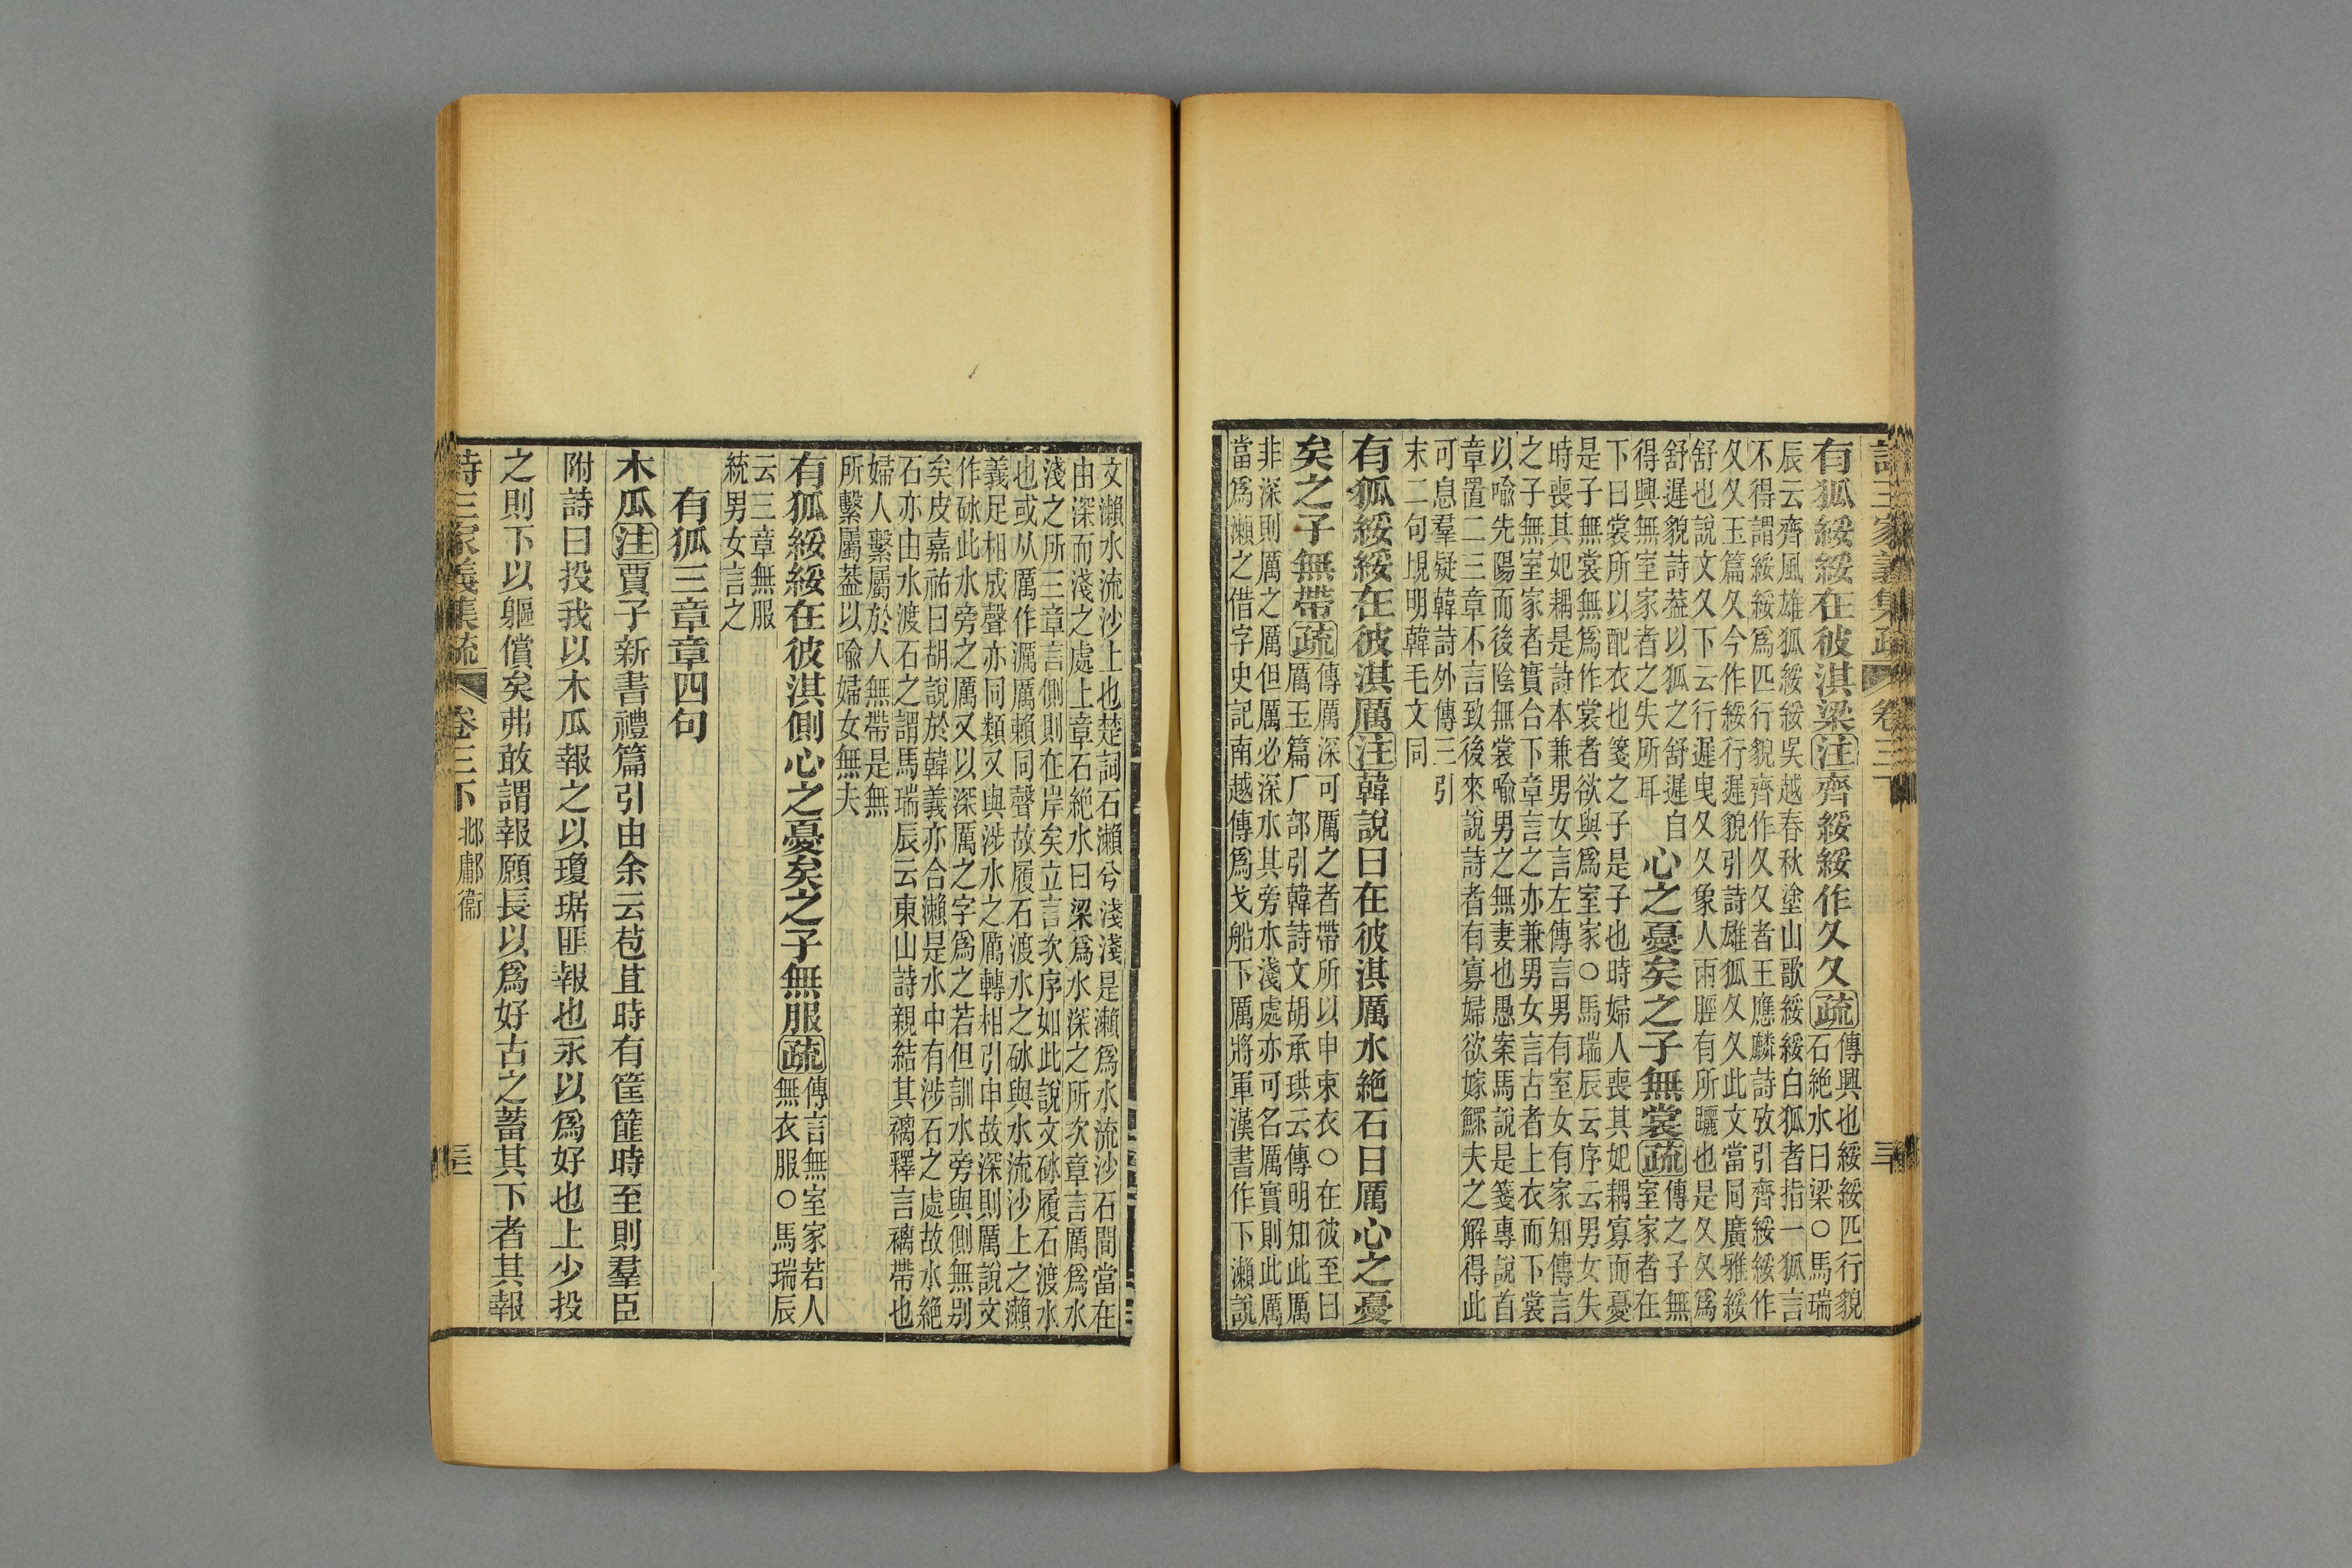 詩三家義集疏 卷三下
有狐綏綏在彼淇梁注齊綏綏作夂夂疏傳興也綏綏匹行貌
石絶水曰梁○馬瑞
辰云齊風雄狐綏綏吳越春秋塗山歌綏綏白狐者指一狐言
不得謂綏綏爲匹行貌齊作夂夂者王應麟詩攷引齊綏綏作
夂夂玉篇夂今作綏行遲貌引詩雄狐夂夂此文當同廣雅綏
舒也說文夂下云行遲曳夂夂象人兩脛有所躧也是夂夂爲
舒遲貌詩葢以狐之舒遲自
得興無室家者之失所耳
心之憂矣之子無裳疏傳之子無
室家者在
下曰裳所以配衣也箋之子是子也時婦人喪其妃耦寡而憂
是子無裳無爲作裳者欲與爲室家○馬瑞辰云序云男女失
時喪其妃耦是詩本兼男女言左傳言男有室女有家知傳言
之子無室家者實合下章言之亦兼男女言古者上衣而下裳
以喻先陽而後陰無裳喻男之無妻也愚案馬說是箋專說首
章置二三章不言致後來說詩者有寡婦欲嫁鰥夫之解得此
可息羣疑韓詩外傳三引
末二句堄明韓毛文同
有狐綏綏在彼淇厲注韓說曰在彼淇厲水絶石曰厲心之憂
矣之子無帶疏傳厲深可厲之者帶所以申束衣○在彼至曰
厲玉篇厂部引韓詩文胡承珙云傳明知此厲
非深則厲之厲但厲必深水其旁水淺處亦可名厲實則此厲
當爲瀨之借字史記南越傳爲戈船下厲將軍漢書作下瀨說
文瀨水流沙上也楚詞石瀨兮淺淺是瀨爲水流沙石間當在
由深而淺之處上章石絶水曰梁爲水深之所次章言厲爲水
淺之所三章言側則在岸矣立言次序如此說文砅履石渡水
也或从厲作濿厲賴同聲故履石渡水之砅與水流沙上之瀨
義足相成聲亦同類又與涉水之厲轉相引申故深則厲說文
作砅此水旁之厲又以深厲之字爲之若但訓水旁與側無别
矣皮嘉祐曰胡說於韓義亦合瀨是水中有涉石之處故水絶
石亦由水渡石之謂馬瑞辰云東山詩親結其褵釋言褵帶也
婦人繫屬於人無帶是無
所繫屬葢以喻婦女無夫
有狐綏綏在彼淇側心之憂矣之子無服疏傳言無室家若人
無衣服○馬瑞辰
云三章無服
統男女言之
有狐三章章四句
木瓜注賈子新書禮篇引由余云苞苴時有筐篚時至則羣臣
附詩曰投我以木瓜報之以瓊琚匪報也永以爲好也上少投
之則下以軀償矣弗敢謂報願長以爲好古之蓄其下者其報
詩三家義集疏 卷三下 邶鄘衞